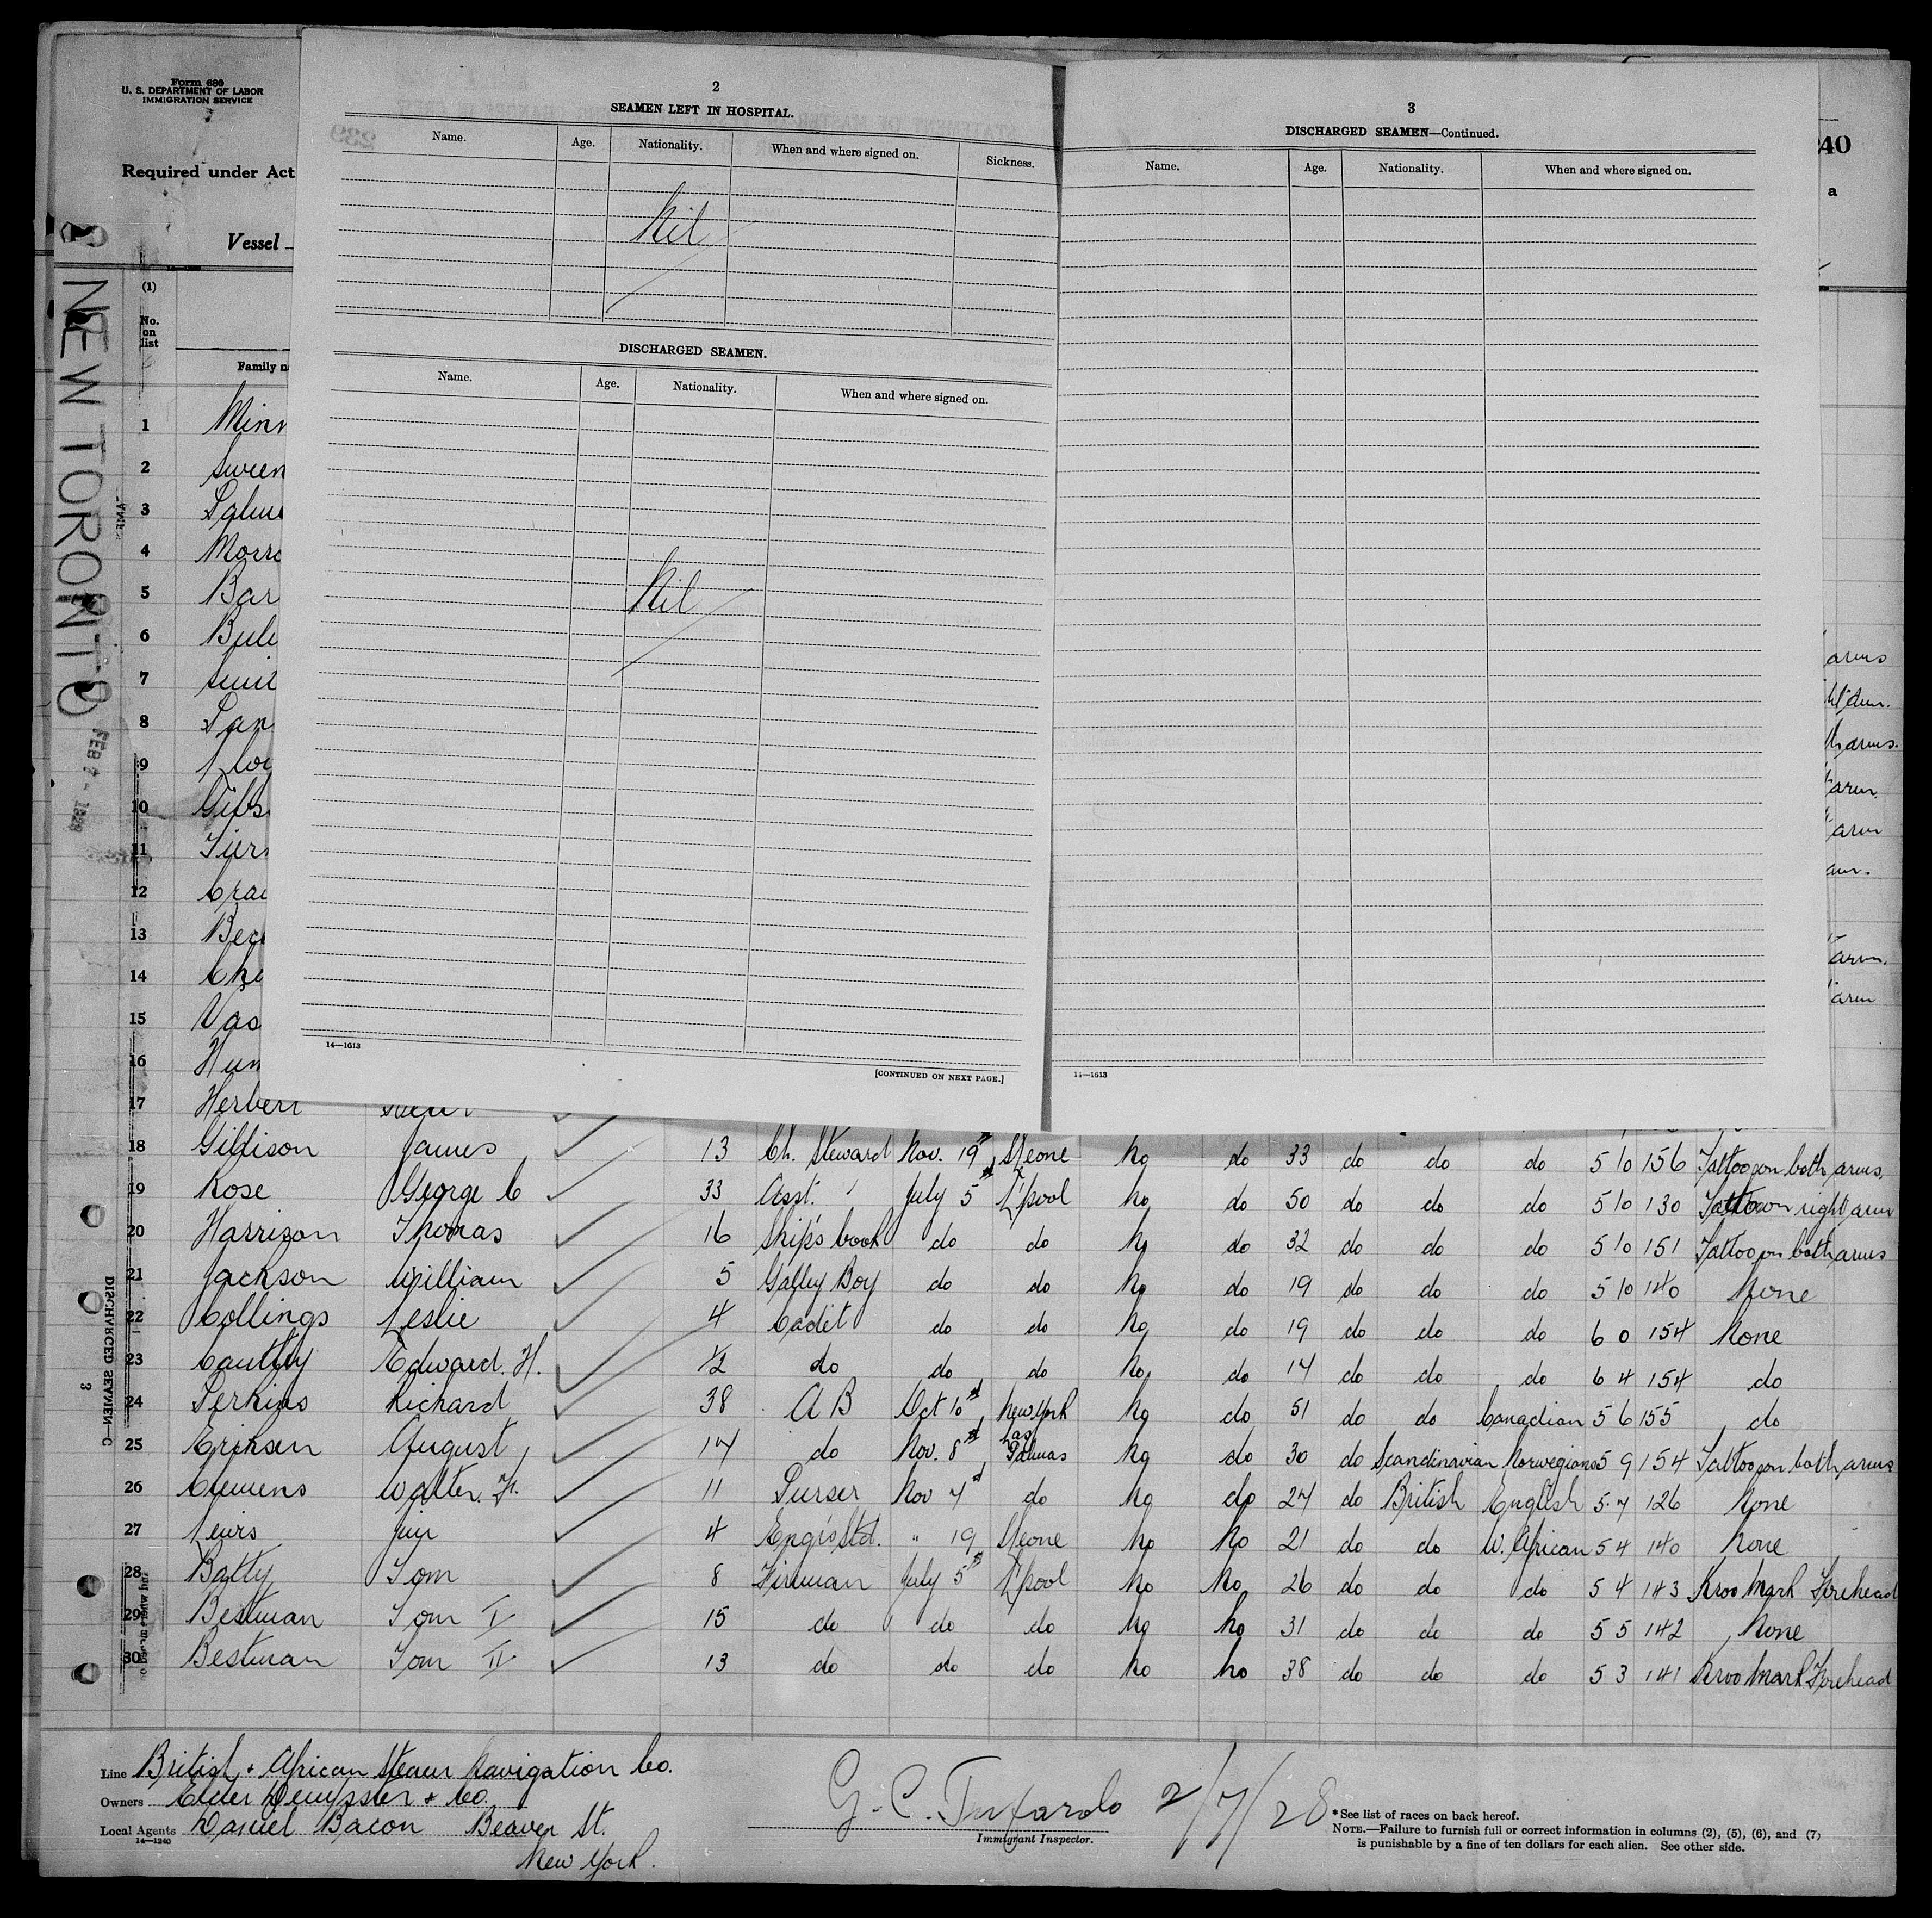 Form 680
U. S. DEPARTMENT OF LABOR
IMMIGRATION SERVICE
Required under Act
Vessel
240
a
NEW TORONTO
FEB 7 - 1928
(1)
No. on list
Family n
2
SEAMEN LEFT IN HOSPITAL.
Name. Age. Nationality. When and where signed on. Sickness.
Nil
DISCHARGED SEAMEN.
Name. Age. Nationality. When and where signed on.
Nil
14—1613
[CONTINUED ON NEXT PAGE.]
3
DISCHARGED SEAMEN—Continued.
Name. Age. Nationality. When and where signed on.
14—1613
1 Minn
2 Sween
3
4 Morro
5 Bar
6
7
8
9
10 Gibs
11
12 Cra
13
14
15 Vas
16 Hun
arms
arms.
arm.
arm
arm.
arm
17 Herbert
18 Gildison James 13 Ch. Steward Nov. 19th S/Leone No do 33 do do do 5 10 156 Tattoo on both arms.
19 Rose George C 33 Asst. " July 5th L'pool No do 50 do do do 5 10 130 Tattoo on right arm
20 Harrison Thomas 16 Ship's Cook do do No do 32 do do do 5 10 151 Tattoo on both arms
21 Jackson William 5 Galley Boy do do No do 19 do do do 5 10 140 None
22 Collings Leslie 4 Cadet do do No do 19 do do do 6 0 154 None
23 Cautley Edward. H. 1/2 do do do No do 17 do do do 6 4 154 do
24 Perkins Richard 38 A B Oct 10th New York No do 51 do do Canadian 5 6 155 do
25 Eriksen August 17 do Nov. 8th Las Palmas No do 30 do Scandinavian Norwegian 5 9 154 Tattoo on both arms
26 Clemens Walter. F. 11 Purser Nov 7th do No do 27 do British English 5 7 126 None
27 Lewis Jim 4 Engr's Std. " 19 S/Leone No No 21 do do W. African 5 4 140 None
28 Batty Tom 8 Fireman July 5th L'pool No No 26 do do do 5 4 143 Kroo Mark Forehead
29 Bestman Tom I 15 do do do No No 31 do do do 5 5 142 None
30 Bestman Tom II 13 do do do No No 38 do do do 5 3 141 Kroo Mark Forehead
DISCHARGED SEAMEN—C
3
Line British & African Steam Navigation Co.
Owners Elder Dempster & Co.
Local Agents Daniel Bacon Beaver St.
14—1240
New York.
G. C. Tufarolo 2/7/28
Immigrant Inspector.
*See list of races on back hereof.
NOTE.—Failure to furnish full or correct information in columns (2), (5), (6), and (7)
is punishable by a fine of ten dollars for each alien. See other side.